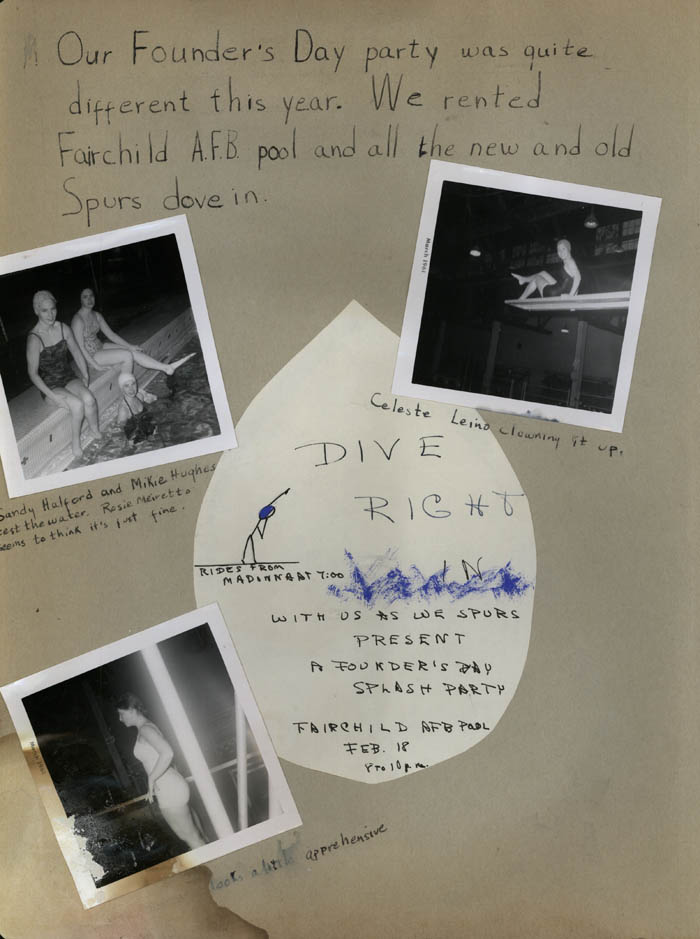 Our Founder's Day party was quite
different this year. We rented
Fairchild A.F.B. pool and all the new and old
Spurs dove in.
March 1961
Celeste Leino clowning it up.
Sandy Halford and Mikie Hughes
test the water. Rosie Meiretto
seems to think it's just fine.
DIVE
RIGHT
IN
RIDES FROM
MADONNA AT 7:00
WITH US AS WE SPURS
PRESENT
A FOUNDER'S DAY
SPLASH PARTY
FAIRCHILD AFB POOL
FEB. 18
8 to 10 p.m.
looks a little apprehensive